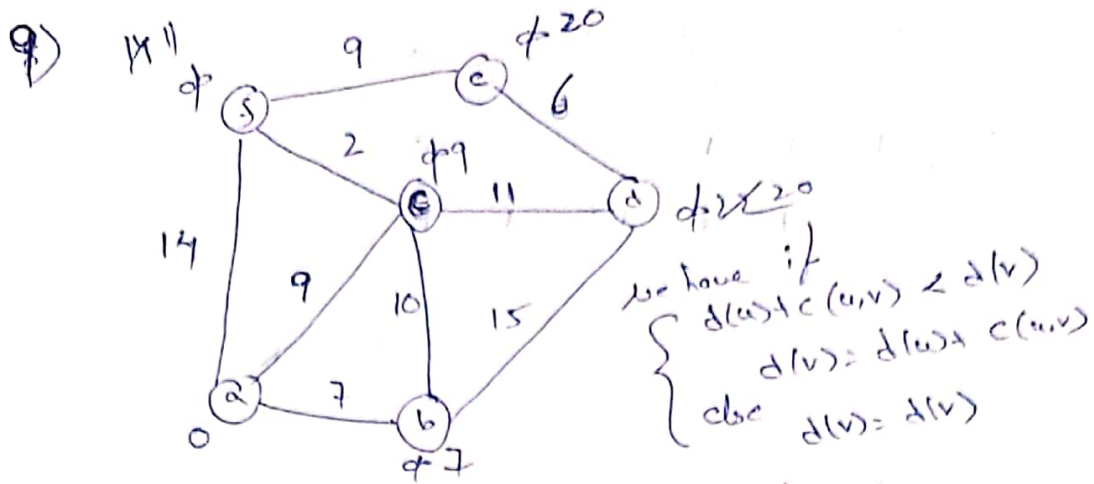 9)
14 11
∞
S
9
∞ 20
e
6
2
∞ 9
c
11
d
∞ 22 20
14
9
10
15
a
7
b
0
∞ 7
we have if
d(u)+c(u,v) < d(v)
d(v)= d(u)+ c(u,v)
else d(v)= d(v)